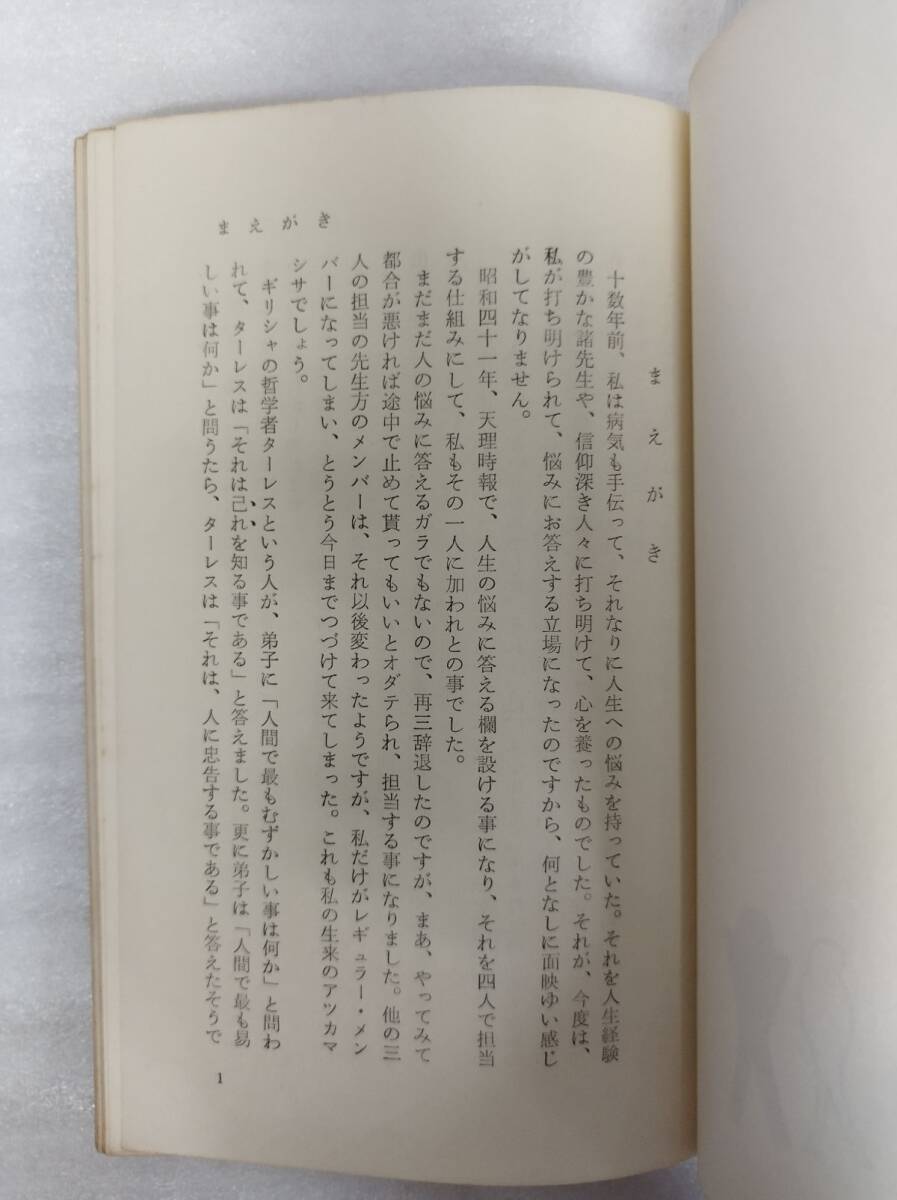 まえがき
まえがき
十数年前、私は病気も手伝って、それなりに人生への悩みを持っていた。それを人生経験
の豊かな諸先生や、信仰深き人々に打ち明けて、心を養ったものでした。それが、今度は、
私が打ち明けられて、悩みにお答えする立場になったのですから、何となしに面映ゆい感じ
がしてなりません。
昭和四十一年、天理時報で、人生の悩みに答える欄を設ける事になり、それを四人で担当
する仕組みにして、私もその一人に加われとの事でした。
まだまだ人の悩みに答えるガラでもないので、再三辞退したのですが、まあ、やってみて
都合が悪ければ途中で止めて貰ってもいいとオダテられ、担当する事になりました。他の三
人の担当の先生方のメンバーは、それ以後変わったようですが、私だけがレギュラー・メン
バーになってしまい、とうとう今日までつづけて来てしまった。これも私の生来のアツカマ
シサでしょう。
ギリシャの哲学者ターレスという人が、弟子に「人間で最もむずかしい事は何か」と問わ
れて、ターレスは「それは己れを知る事である」と答えました。更に弟子は「人間で最も易
しい事は何か」と問うたら、ターレスは「それは、人に忠告する事である」と答えたそうで
1